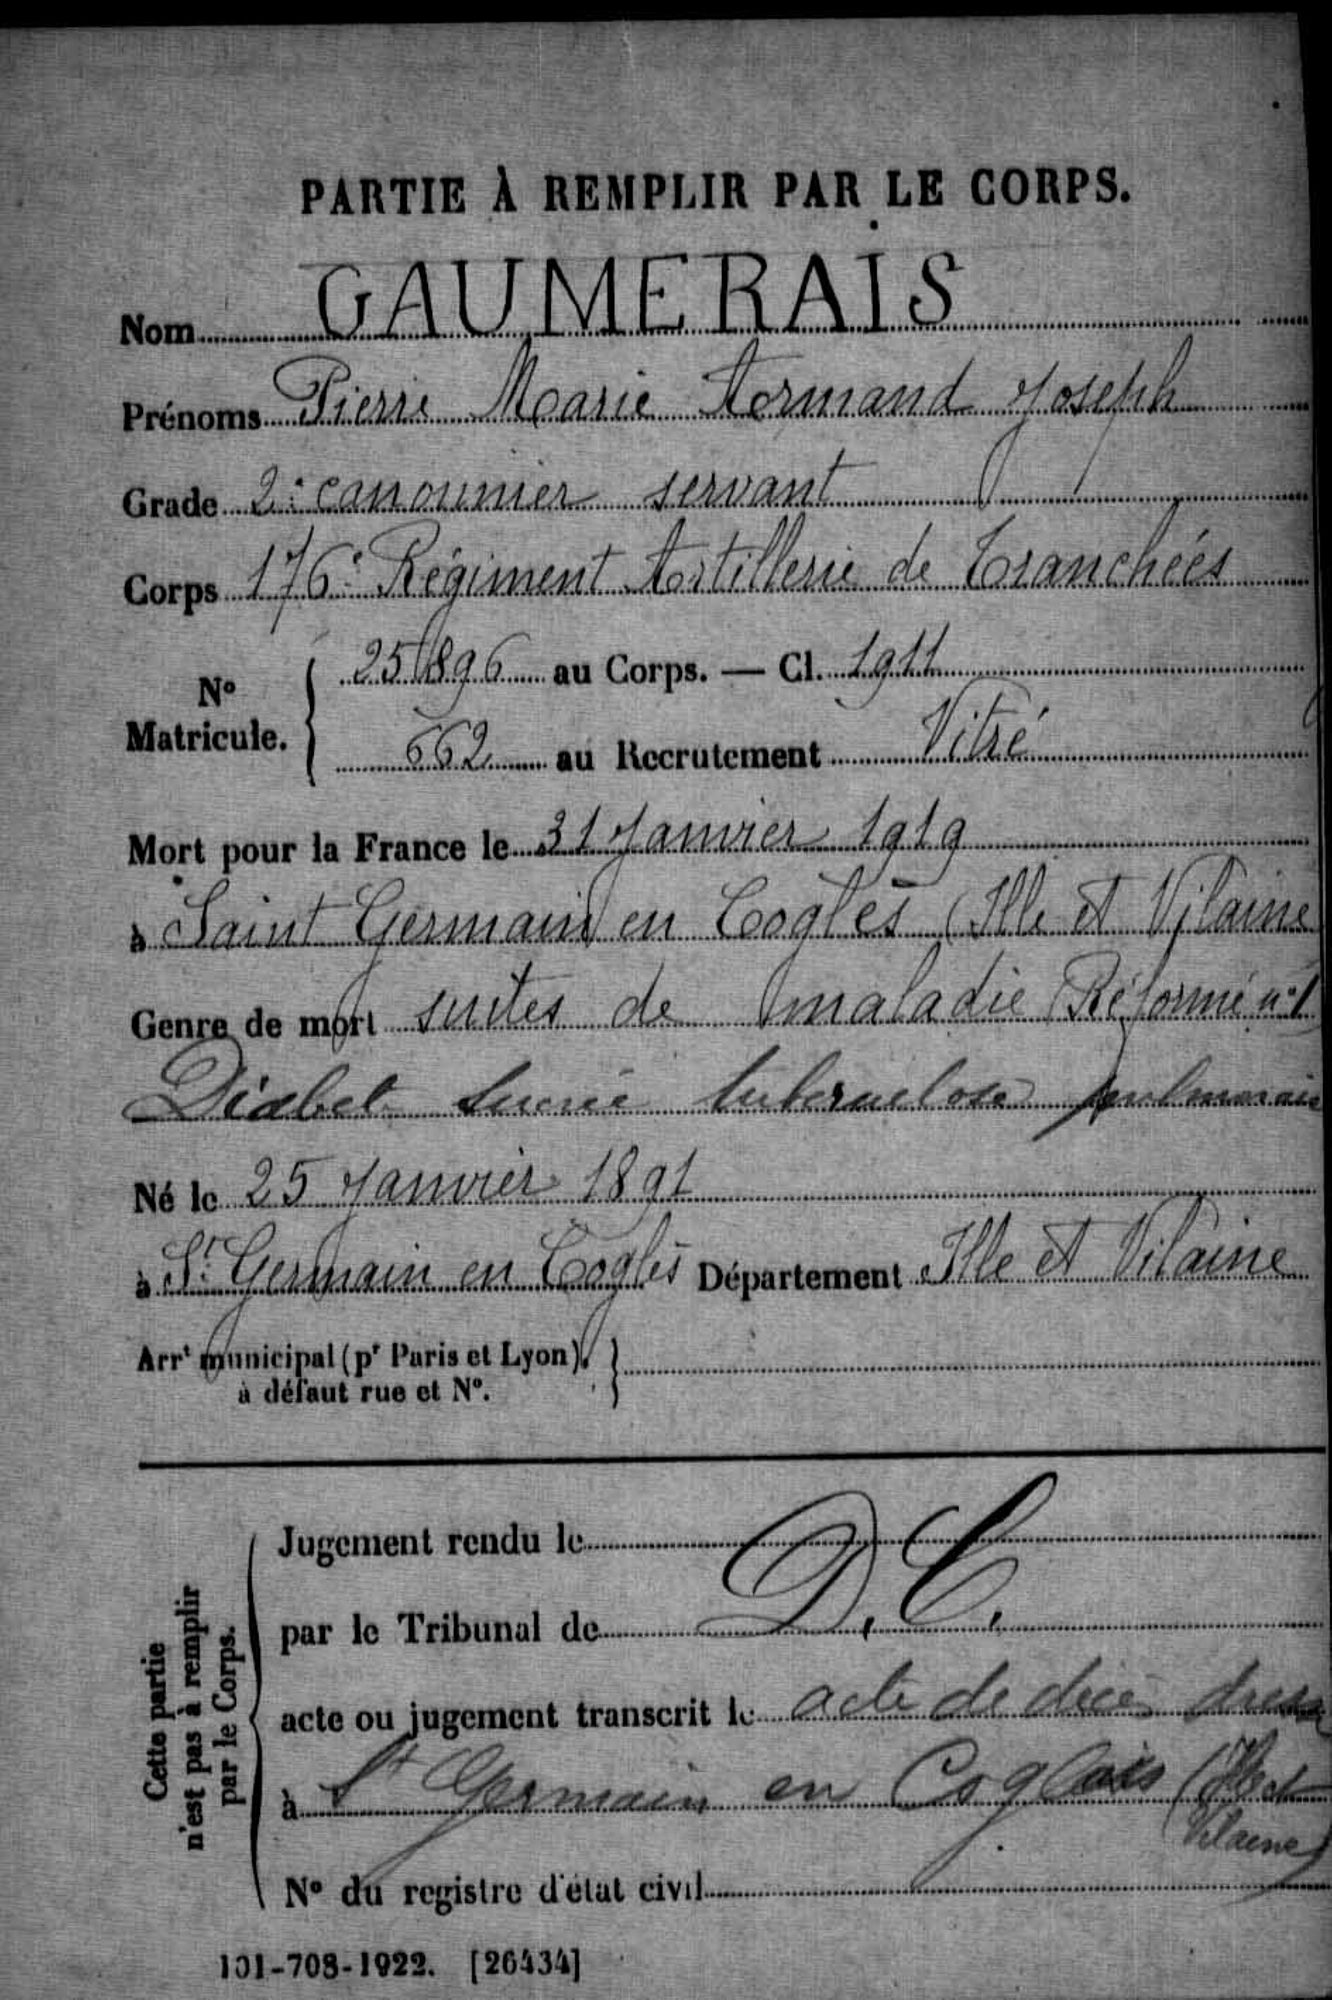 PARTIE À REMPLIR PAR LE CORPS.
Nom GAUMERAIS
Prénoms Pierre Marie Armand Joseph
Grade 2e canonnier servant
Corps 176e Régiment Artillerie de Tranchées
N° Matricule. { 25896 au Corps. — Cl. 1911
662 au Recrutement Vitré
Mort pour la France le 31 Janvier 1919
à Saint Germain en Coglès (Ille et Vilaine
Genre de mort suites de maladie (Réformé n°1)
Diabet sucré tuberculose pulmonaire
Né le 25 Janvier 1891
à St Germain en Coglès Département Ille et Vilaine
Arrt municipal (pr Paris et Lyon),
à défaut rue et N°.
Cette partie
n'est pas à remplir
par le Corps.
Jugement rendu le
par le Tribunal de D. C.
acte ou jugement transcrit le acte de décès dressé
à St Germain en Coglais (Ille et
Vilaine)
N° du registre d'état civil
101-708-1922. [26434]